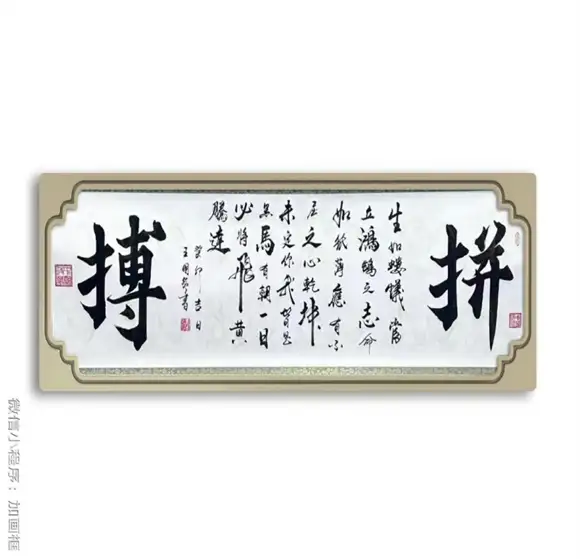 拼
生如蝼蚁当
立鸿鹄之志命
如纸薄应有不
屈之心乾坤
未定你我皆是
黑马有朝一日
必将飞黄
腾达
癸卯吉日
王国
书
搏
微信小程序：加画框